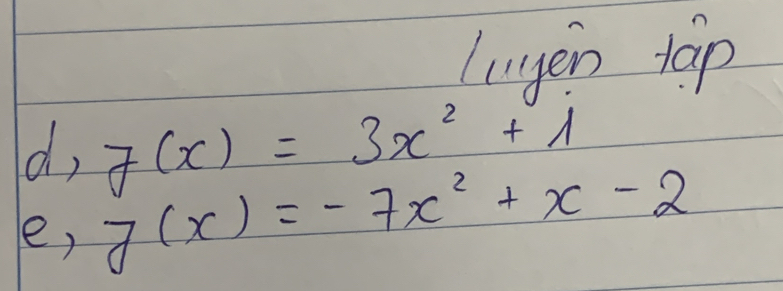 luyện tập
d, f(x) = 3x² + 1
e, f(x) = - 7x² + x - 2